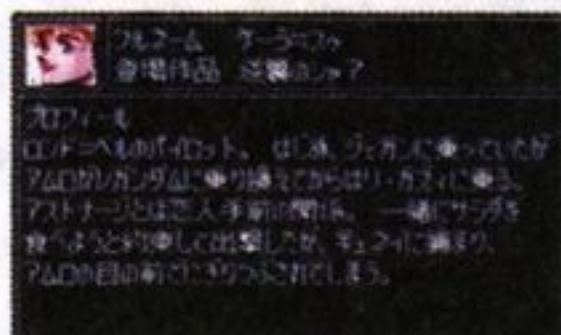 フルネーム ケーラ=スゥ
登場作品 逆襲のシャア
プロフィール
ロンド=ベルのパイロット。 はじめ、ジェガンに乗っていたが
アムロがνガンダムに乗り換えてからはリ・ガズィに乗る。
アストナージとは恋人手前の関係。 一緒にサラダを
食べようと約束して出撃したが、ギュネイに捕まり、
アムロの目の前でにぎりつぶされてしまう。